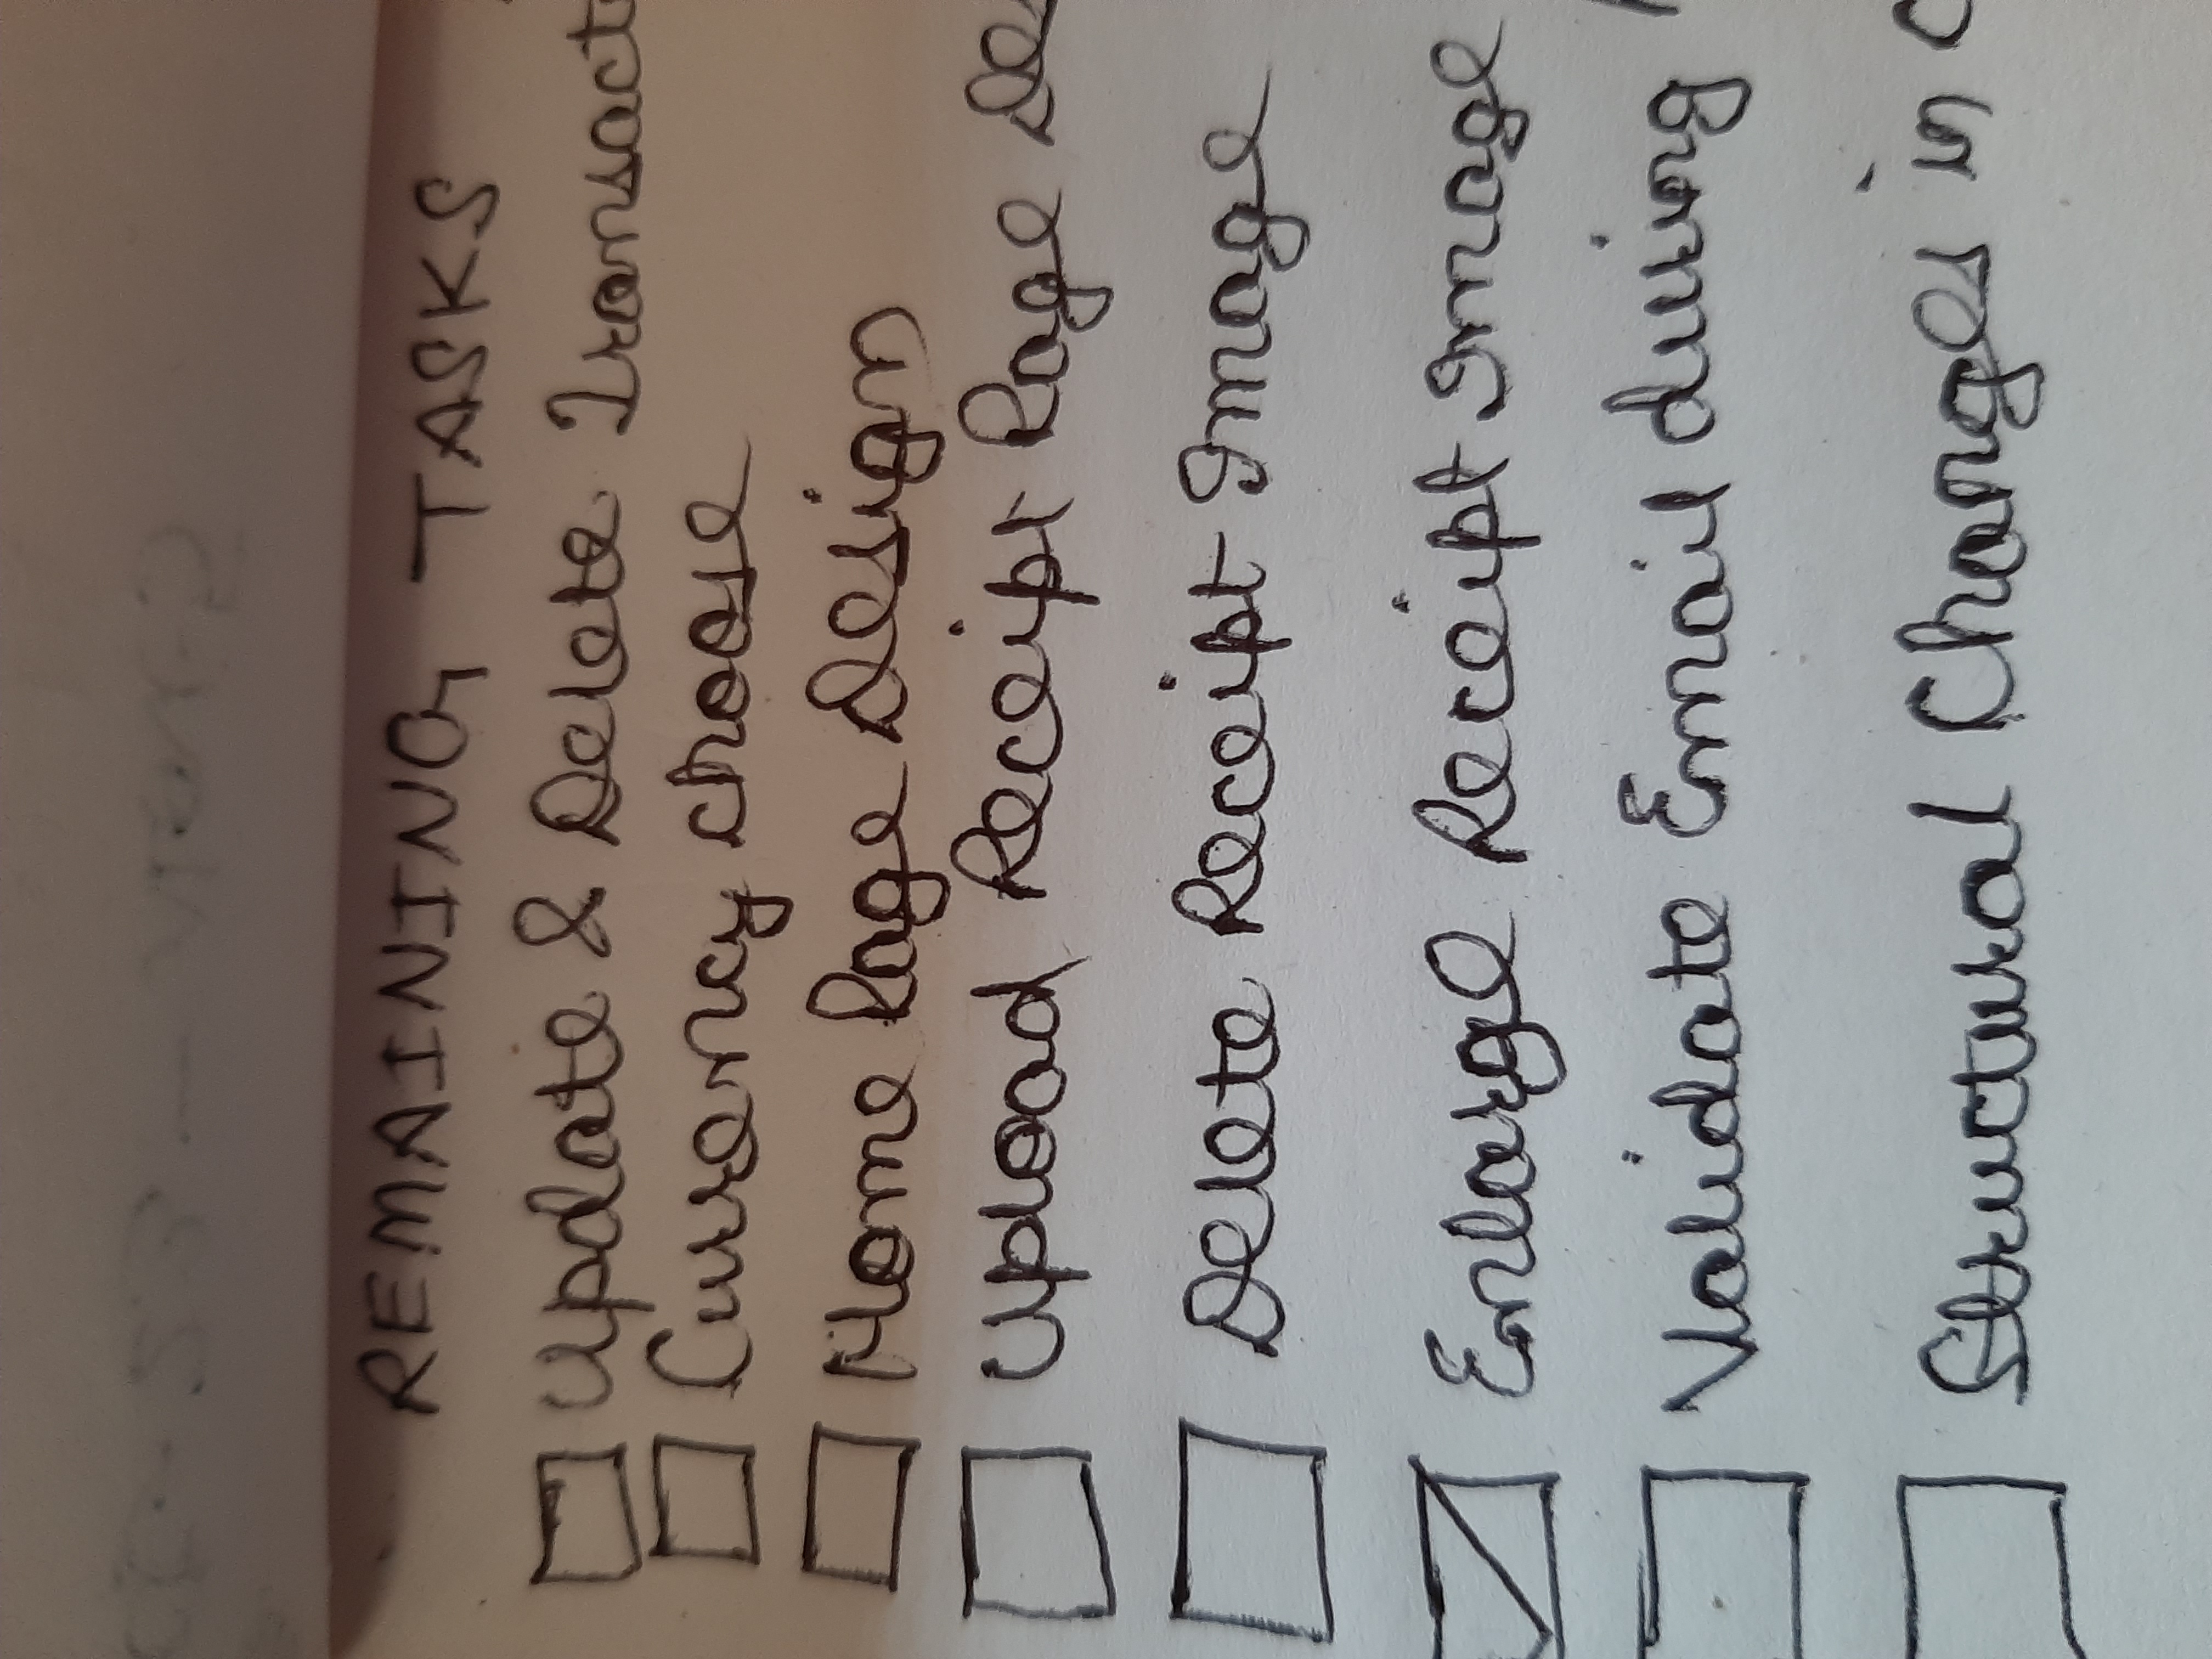 REMAINING TASKS
Update & Delete Transact
Currency choose
Home Page Design
Upload Receipt Page Des
Delete Receipt Image
Enlarge Receipt Image
Validate Email during
Structural Changes in C